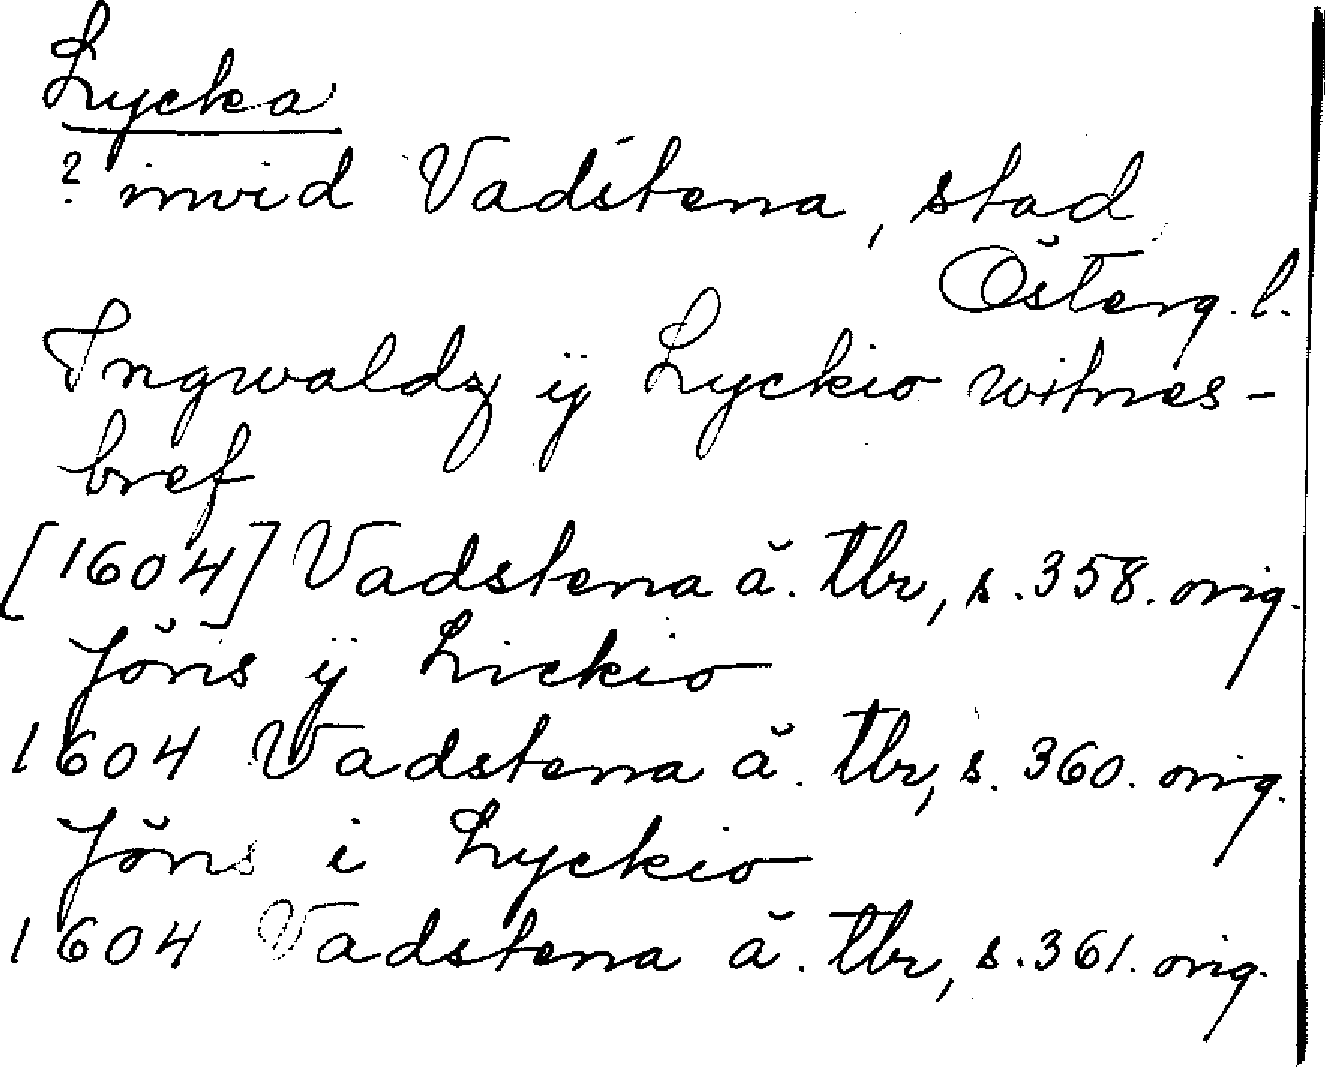 Lycka
? invid Vadstena, stad
Österg. l.
Ingwaldz ij Lyckio witnes-
bref
[1604] Vadstena ä. tbr, s. 358. orig.
Jöns ij Lickio
1604 Vadstena ä. tbr, s. 360. orig.
Jöns i Lyckio
1604 Vadstena ä. tbr, s. 361. orig.